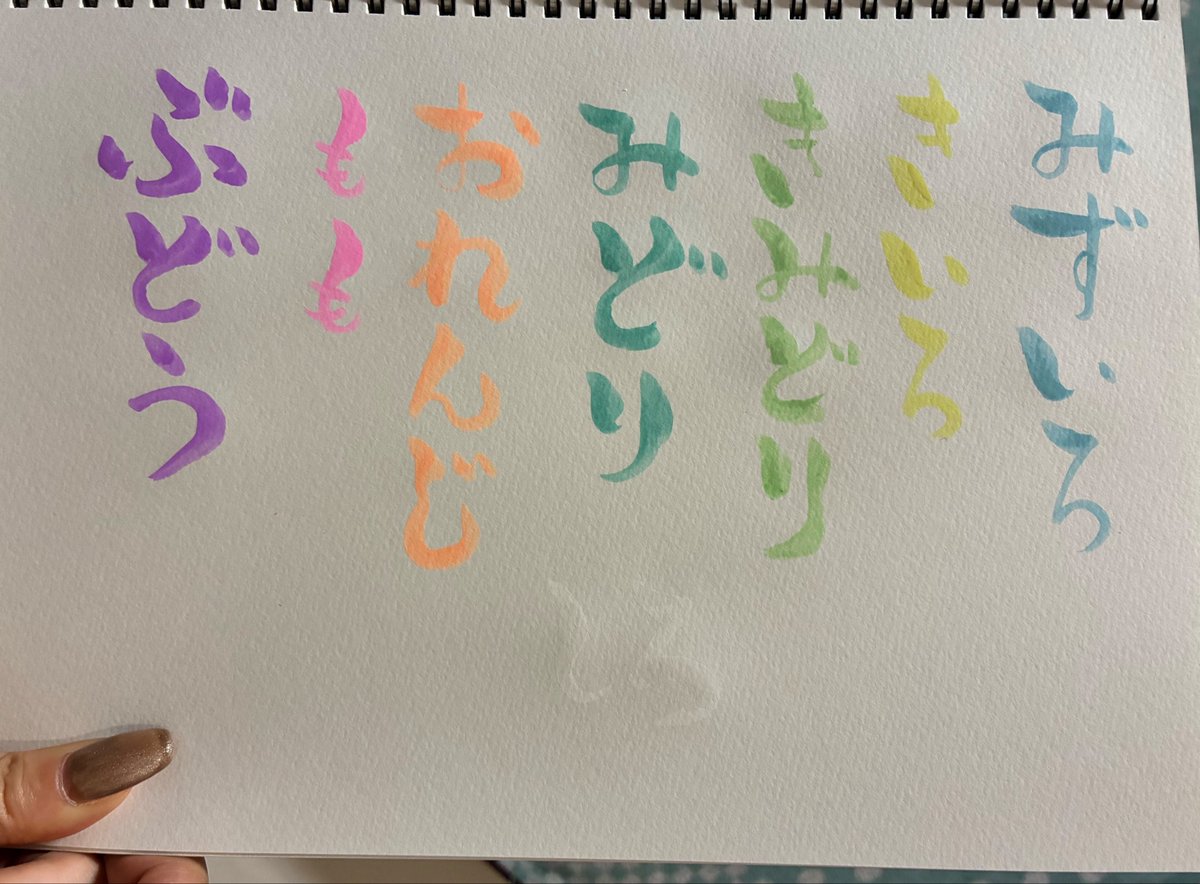 みずいろ
きいろ
きみどり
みどり
おれんじ
もも
ぶどう
しろ